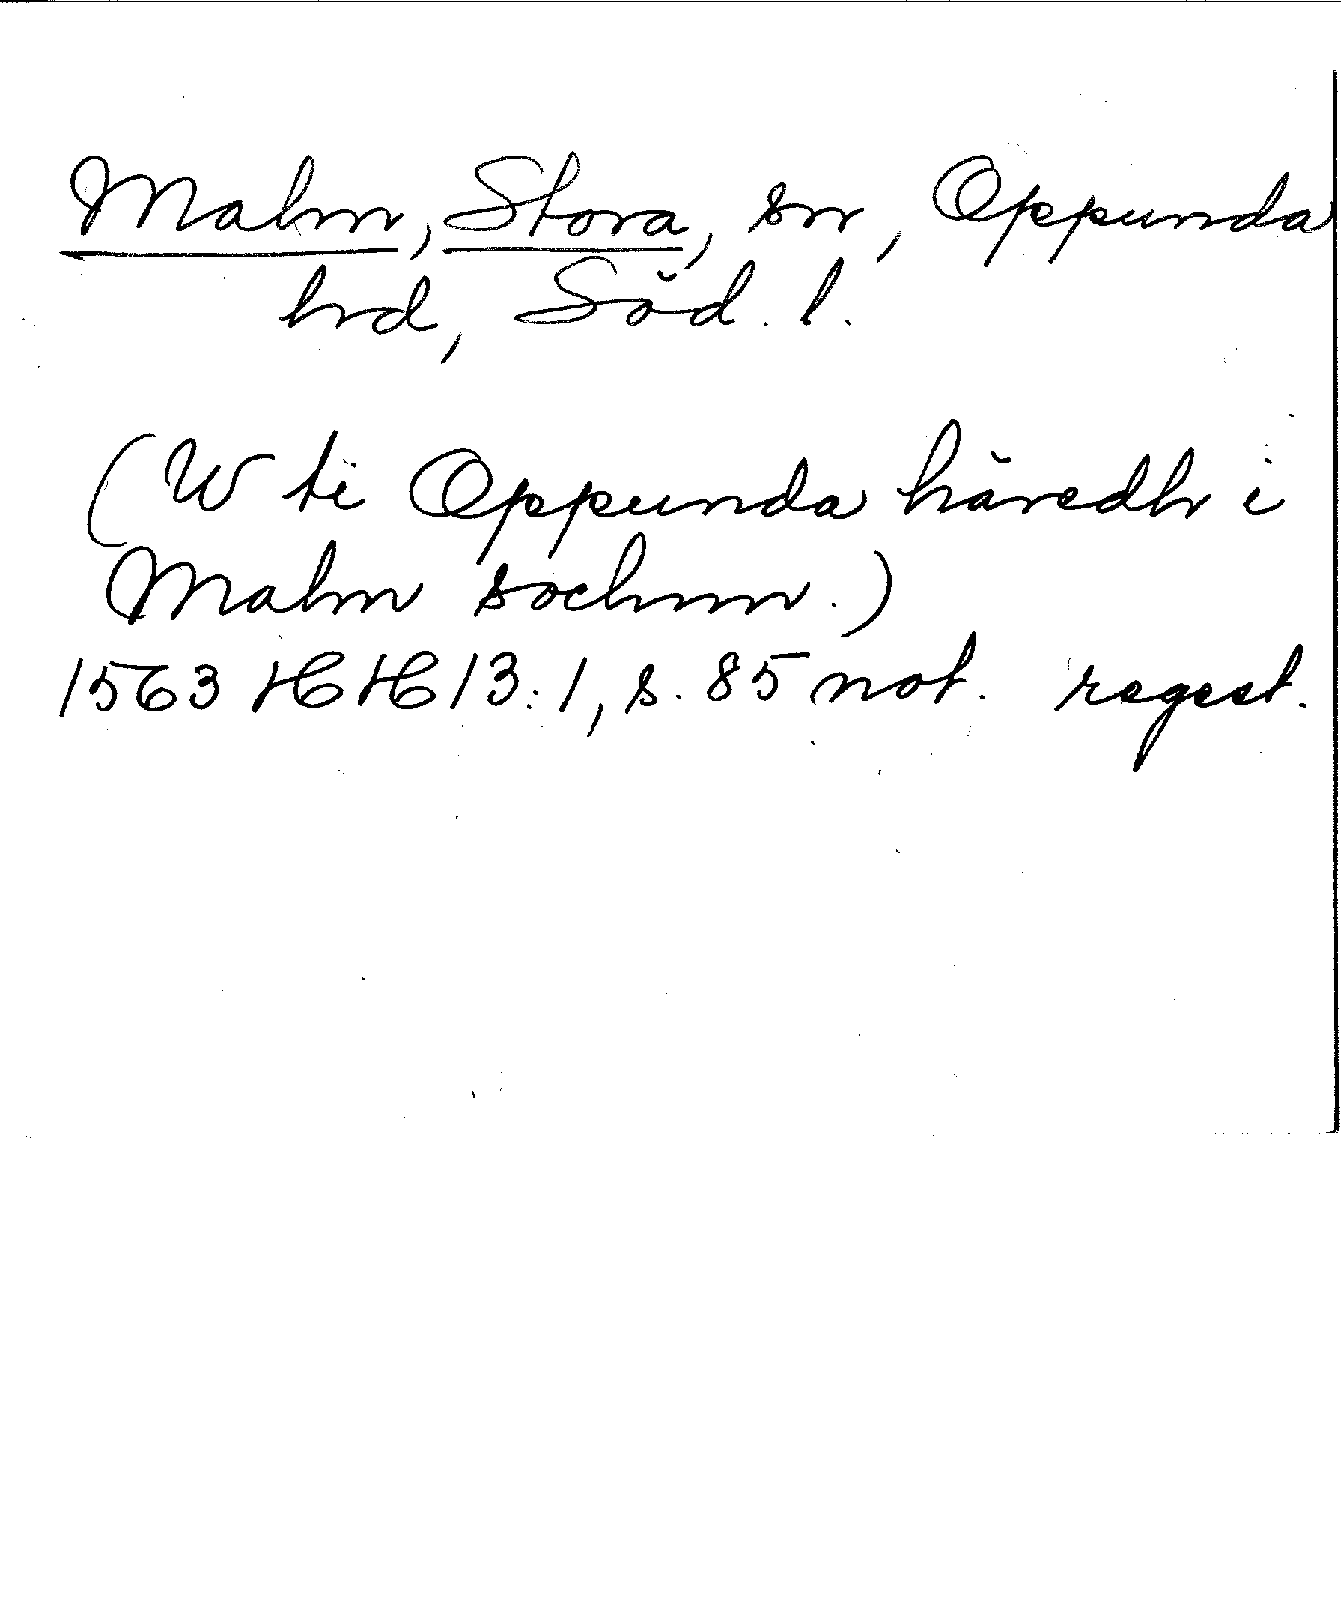 Malm, Stora, sn, Oppunda
hrd, Söd. l.
(W ti Oppunda häredh i
Malm sochnn.)
1563 HH 13:1, s. 85 not. regest.